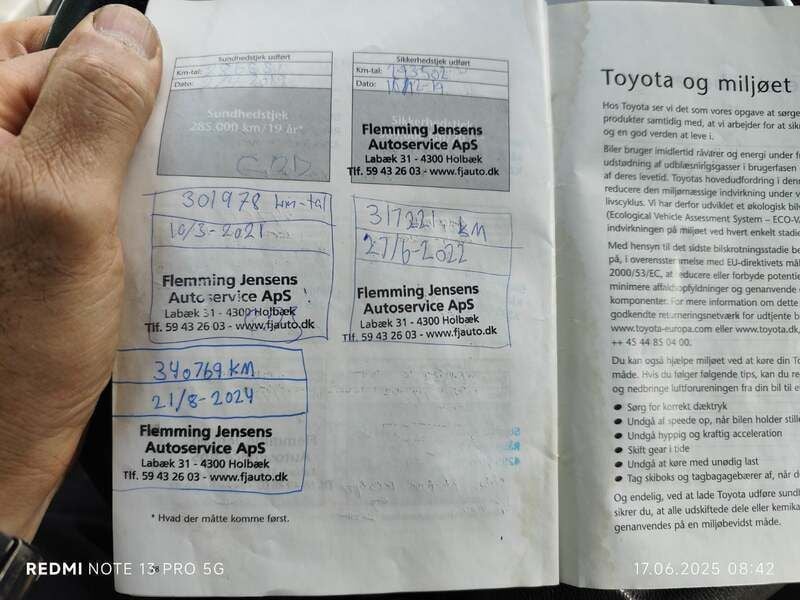 Sundhedstjek udført
Km-tal:
Dato:
Sundhedstjek
285.000 km/19 år*
Sikkerhedstjek udført
Km-tal: 293502
Dato:
Sikkerhedstjek
Flemming Jensens
Autoservice ApS
Labæk 31 - 4300 Holbæk
Tlf. 59 43 26 03 - www.fjauto.dk
301978 km-tal
10/3-2021
Flemming Jensens
Autoservice ApS
Labæk 31 - 4300 Holbæk
Tlf. 59 43 26 03 - www.fjauto.dk
317221 KM
27/6-2022
Flemming Jensens
Autoservice ApS
Labæk 31 - 4300 Holbæk
Tlf. 59 43 26 03 - www.fjauto.dk
340769 KM
21/8-2024
Flemming Jensens
Autoservice ApS
Labæk 31 - 4300 Holbæk
Tlf. 59 43 26 03 - www.fjauto.dk
* Hvad der måtte komme først.
Toyota og miljøet
Hos Toyota ser vi det som vores opgave at sørge
produkter samtidig med, at vi arbejder for at sik
og en god verden at leve i.
Biler bruger imidlertid råvarer og energi under f
udstødning af udblæsnirgsgasser i brugerfasen
af deres levetid. Toyotas hovedudfordring i denn
reducere den miljømæssige indvirkning under v
livscyklus. Vi har derfor udviklet et økologisk bils
(Ecological Vehicle Assessment System – ECO-VA
indvirkningen på miljøet ved hvert enkelt stadie
Med hensyn til det sidste bilskrotningsstadie be
på, i overensstemmelse med EU-direktivets mål
2000/53/EC, at reducere eller forbyde potentie
minimere affaldsopfyldninger og genanvende
komponenter. For mere information om dette
godkendte returneringsnetværk for udtjente b
www.toyota-europa.com eller www.toyota.dk,
++ 45 44 85 04 00.
Du kan også hjælpe miljøet ved at køre din To
måde. Hvis du følger følgende tips, kan du re
og nedbringe luftforureningen fra din bil til e
● Sørg for korrekt dæktryk
● Undgå at speede op, når bilen holder stille
● Undgå hyppig og kraftig acceleration
● Skift gear i tide
● Undgå at køre med unødig last
● Tag skiboks og tagbagagebærer af, når d
Og endelig, ved at lade Toyota udføre sund
sikrer du, at alle udskiftede dele eller kemika
genanvendes på en miljøbevidst måde.
REDMI NOTE 13 PRO 5G
17.06.2025 08:42